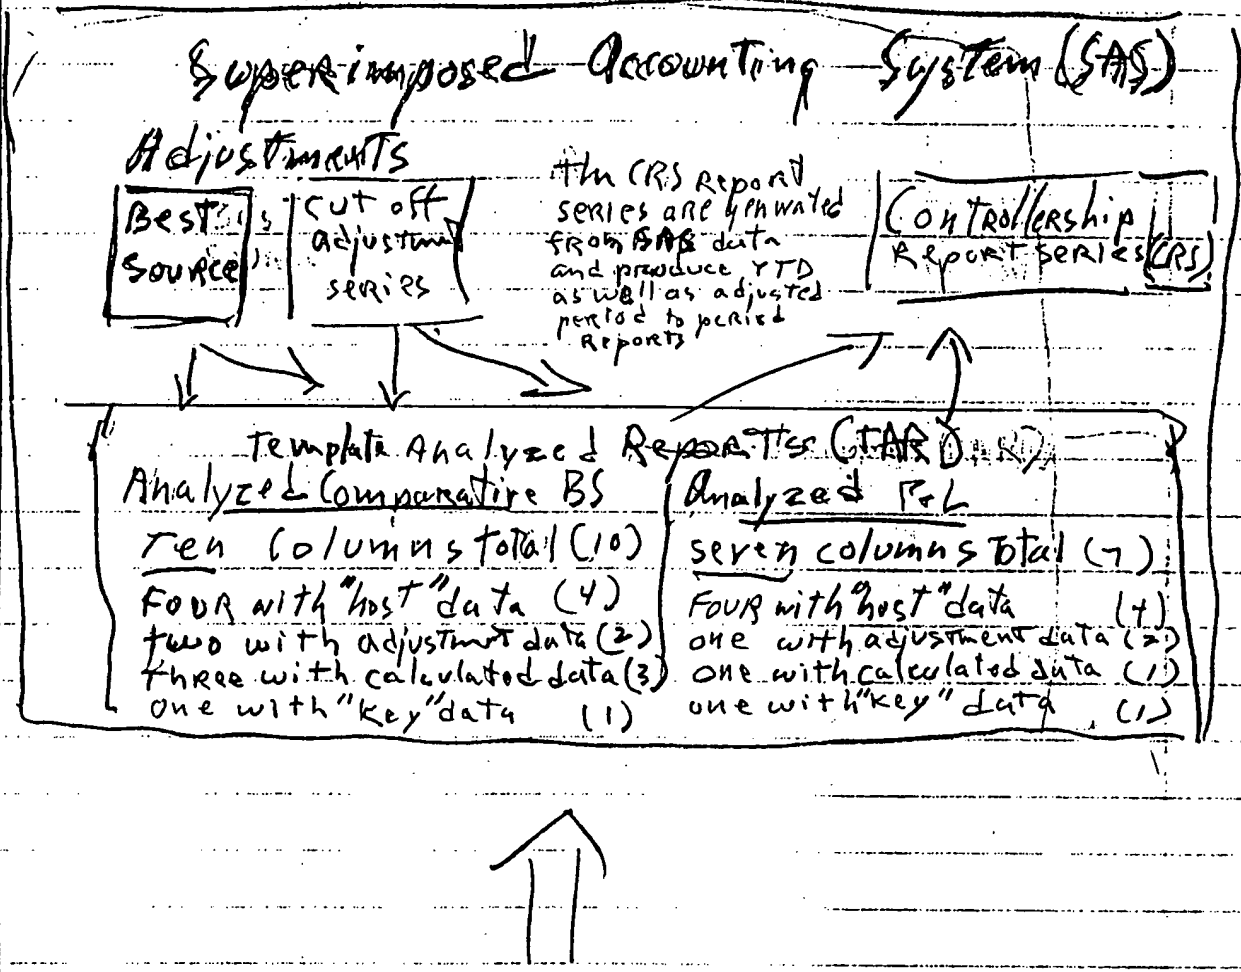 Superimposed Accounting System (SAS)
Adjustments
Best
Source
cut off
adjustment
series
the CRS Report
series are genwated
from SAS data
and produce YTD
as well as adjusted
period to period
Reports
Controllership
Report series (CRS)
Template Analyzed Reports (TAR)
Analyzed Comparative BS
Ten Columns total (10)
FOUR with "host" data (4)
two with adjustment data (2)
three with calculated data (3)
one with "key" data (1)
Analyzed P&L
seven columns Total (7)
FOUR with "host" data (4)
one with adjustment data
one with calculated data (1)
one with "key" data (1)